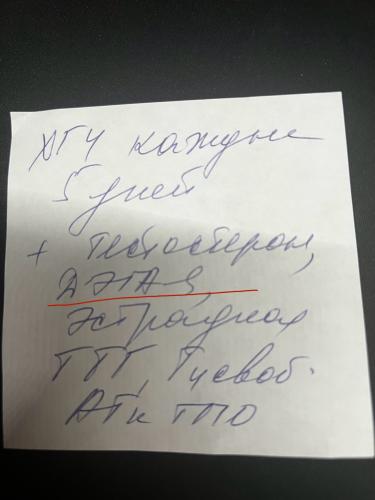 ХГЧ каждые
5 дней
+ Тестостерон,
ДЭГАS,
Эстрадиол
ТТГ, Т4своб.
АТк ТПО